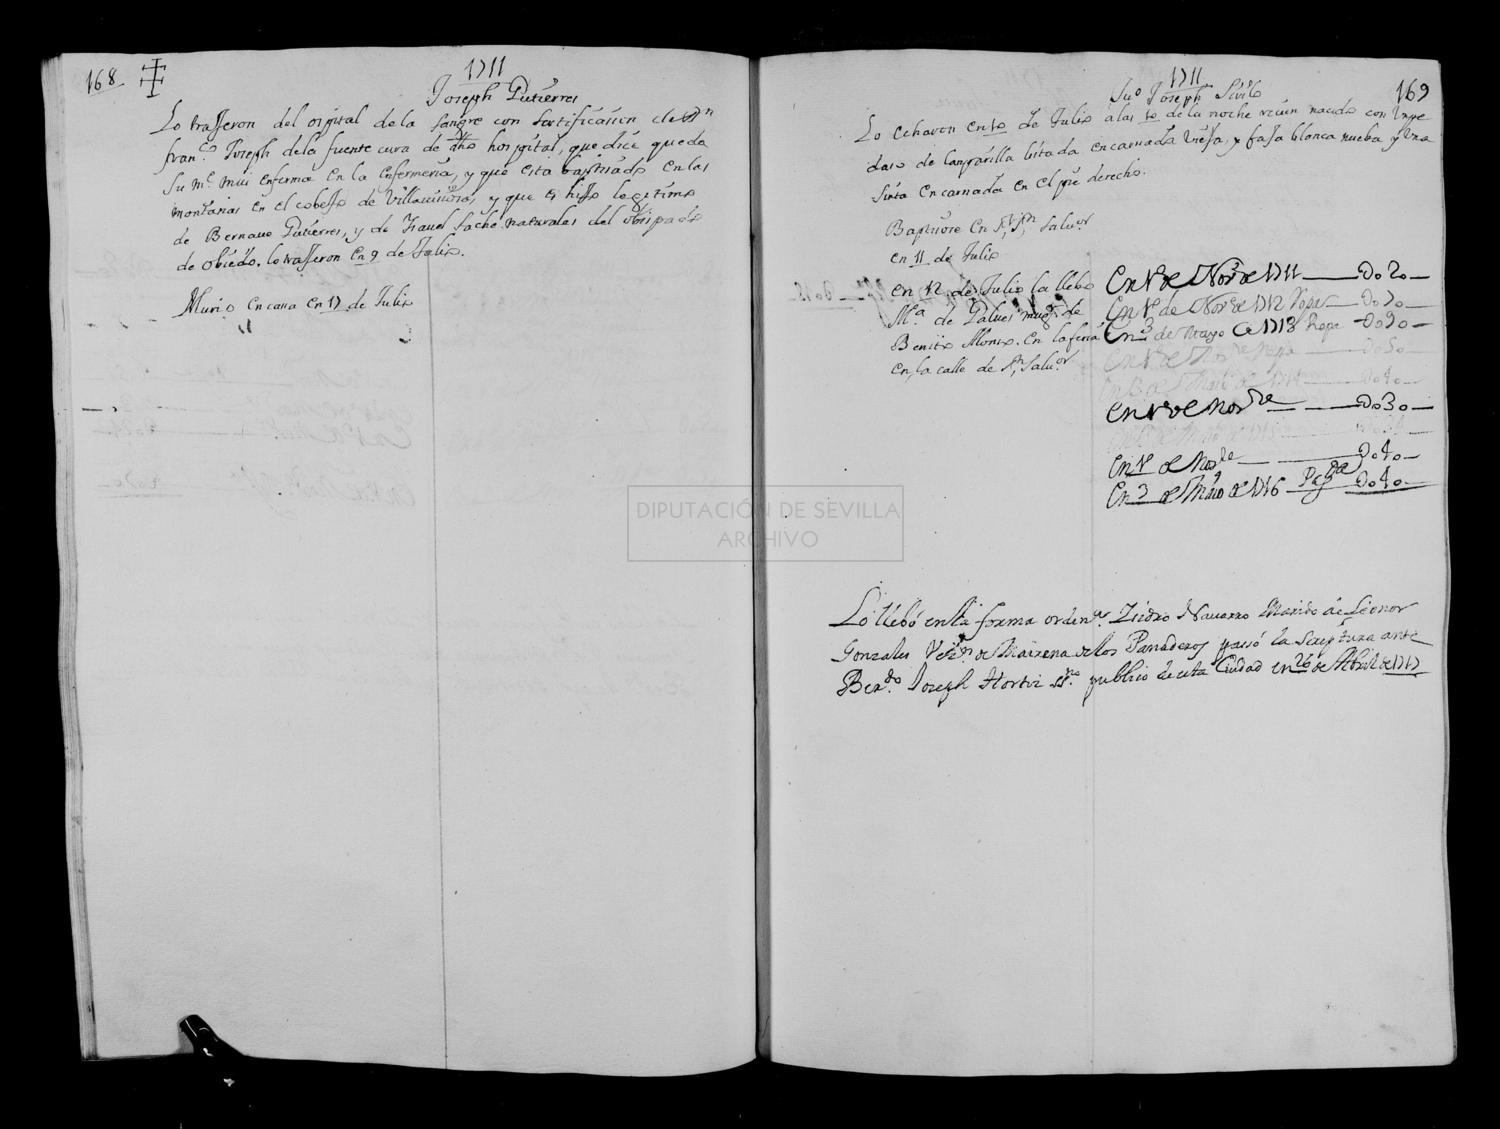 168
1711
Joseph Gutierres
Lo trasseron del ospital de la sangre con sertificasion de Dn
fran.co Joseph dela fuente cura de dho hospital, que dice queda
su me mui enferma en la enfermeria, y que esta baptisado en las
montañas en el de Villaviciosa, y que es hijo legitimo
de Bernave Gutierres, y de naturales del obispado
de obiedo. lo trasseron en 9 de Julio.
Murio en cassa en 17 de Julio
1711
169
Juo Joseph
Lo echaron en 10 de Julio a las 10 de la noche resien nacido con un pe
daso de lanparilla listada encarnada vieja, y faja blanca nueba y una
sinta encarnada en el pie derecho.
Baptisose en Sn Salvor
en 11 de Julio
en 12 de Julio la llebo
Ma de muger de
Benito Alonso. en la feria
en la calle de Sn Salvor
En 1º de Nove de 1711 — Do 20 —
En 1º de Nove de 1712 Ropa — Do 70 —
En 3 de Mayo de 1713 Ropa — Do 90 —
En 1º de Nove Ropa — Do 50 —
En 3 de Maio de 1714 — Do 40 —
En 1º de Novre — Do 30 —
En 1º de Novre — Do 40 —
En 3 de Maio de 1716 Pagda Do 40 —
Lo llebó en la forma ordina Isidro Navarro Marido de Leonor
Gonzales Vezno de Mairena de los Panaderos passó la scriptura ante
Berdo Joseph Hortiz ssno publico de esta Ciudad en 26 de Abril de 1717
DIPUTACIÓN DE SEVILLA
ARCHIVO